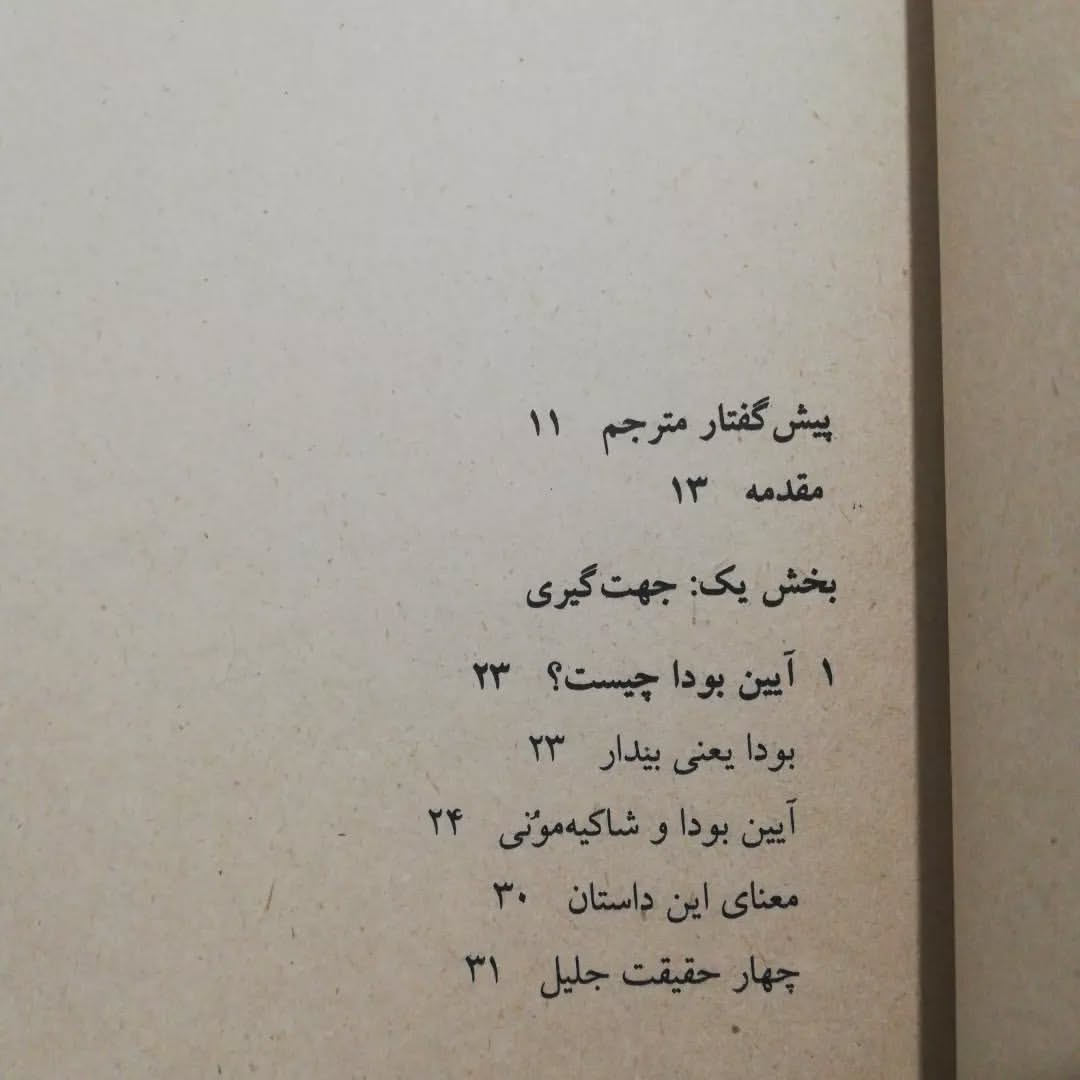 پیش‌گفتار مترجم ۱۱
مقدمه ۱۳
بخش یک: جهت‌گیری
۱ آیین بودا چیست؟ ۲۳
بودا یعنی بیدار ۲۳
آیین بودا و شاکیه‌مونی ۲۴
معنای این داستان ۳۰
چهار حقیقت جلیل ۳۱